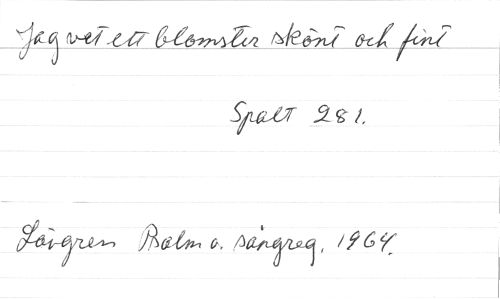 Jag vet ett blomster skönt och fint
Spalt 281.
Lövgren Psalm o. sångreg. 1964.